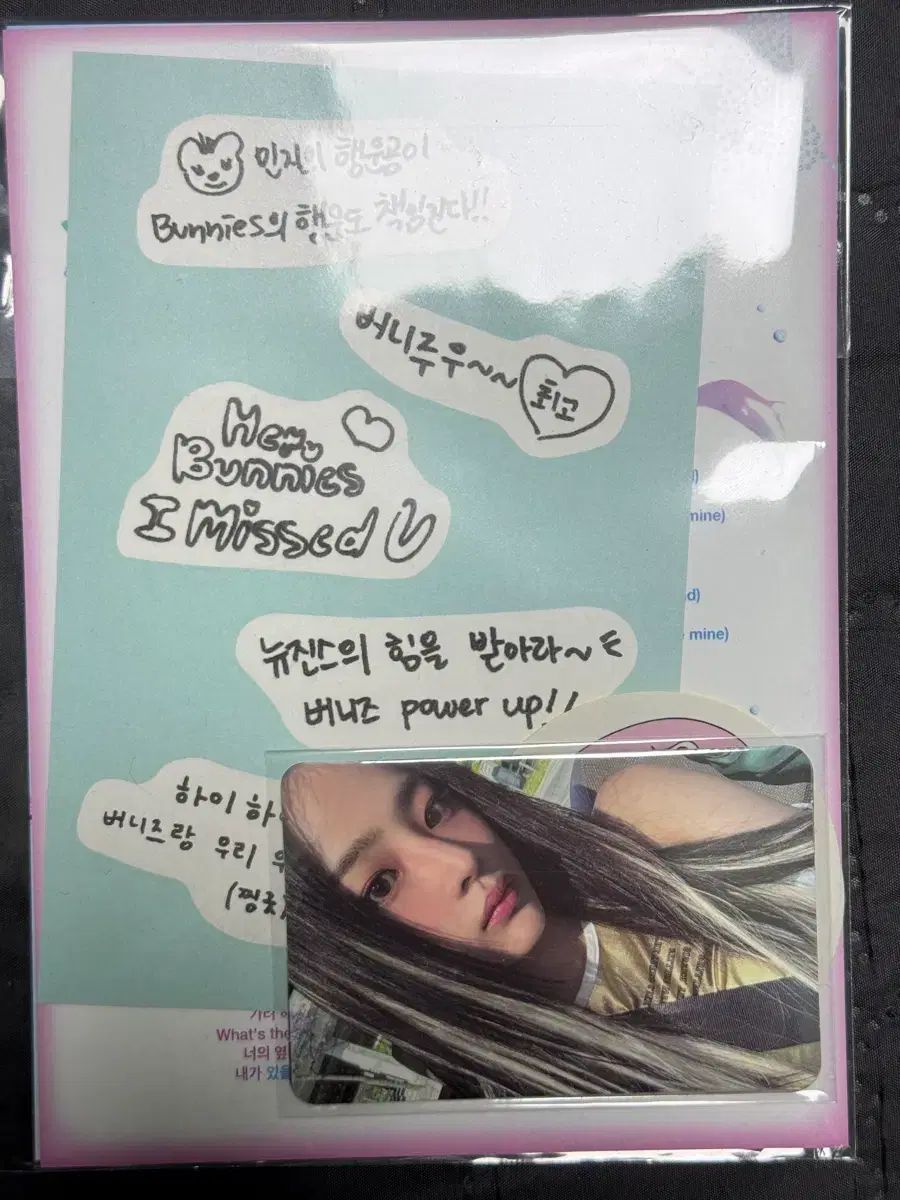 민지의 행운곰이
Bunnies의 행운도 책임진다!!
버니주우~~ 최고
Hey,
Bunnies
I Missed U
mine)
d)
mine)
뉴진스의 힘을 받아라~
버니즈 power up!!
하이
버니즈랑 우리
(찡긋)
What's the
너의 옆
내가 있을